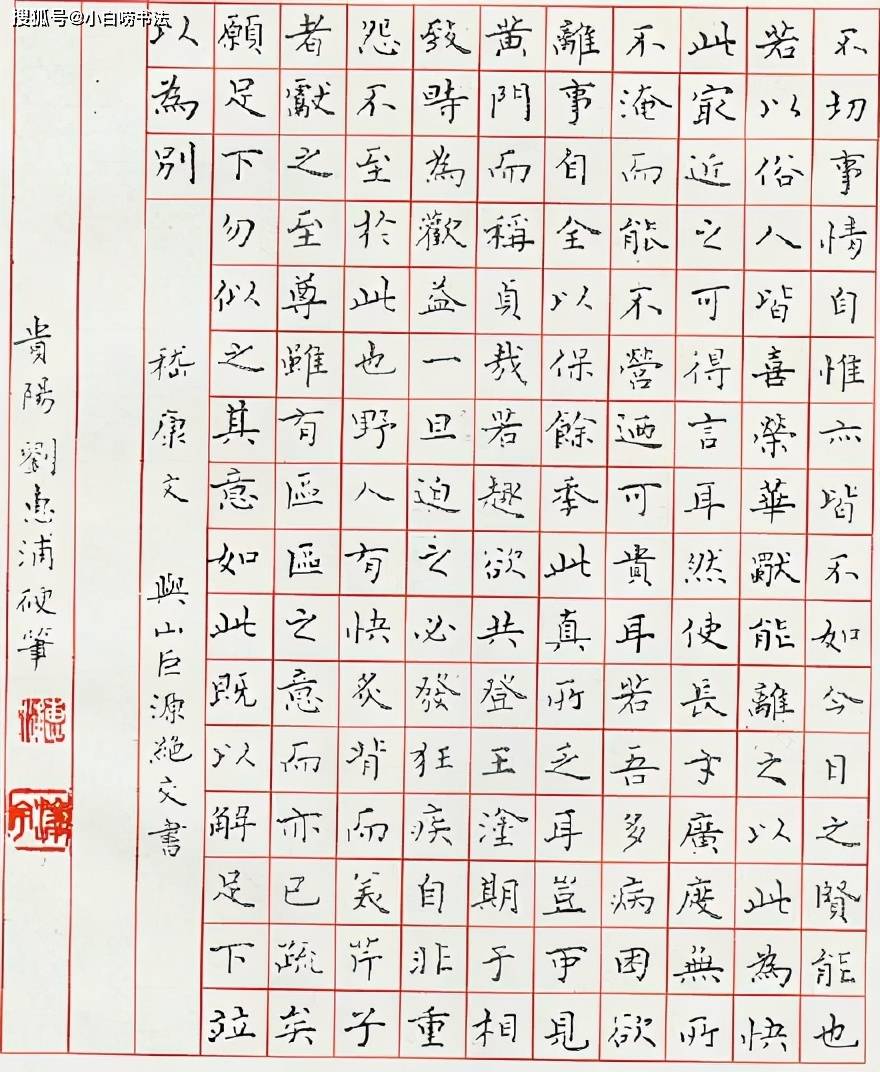 搜狐号@小白唠书法
不切事情自惟亦皆不如今日之賢能也
若以俗人皆喜榮華獨能離之以此為快
此冣近之可得言耳然使長才廣度無所
不淹而能不營迺可貴耳若吾多病困欲
離事自全以保餘季此真所乏耳豈可見
黄門而稱貞哉若趣欲共登王塗期于相
致時為歡益一旦迫之必發狂疾自非重
怨不至於此也野人有快炙背而美芹子
者獻之至尊雖有區區之意而亦已疏矣
願足下勿似之其意如此既以解足下竝
以為別 嵇康文 與山巨源絕交書
貴陽劉惠浦硬筆